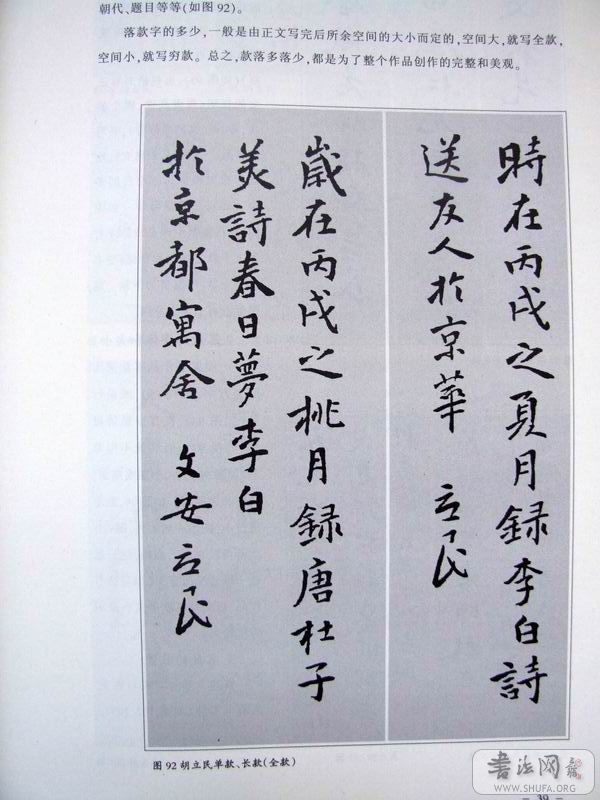 朝代、题目等等(如图92)。
落款字的多少,一般是由正文写完后所余空间的大小而定的,空间大,就写全款,
空间小,就写穷款。总之,款落多落少,都是为了整个作品创作的完整和美观。
時在丙戌之夏月録李白詩
送友人於京華 立民
歲在丙戌之桃月録唐杜子
美詩春日夢李白
於京都寓舍 文安立民
图92 胡立民单款、长款(全款)
书法网
WWW.SHUFA.ORG
- 39 -